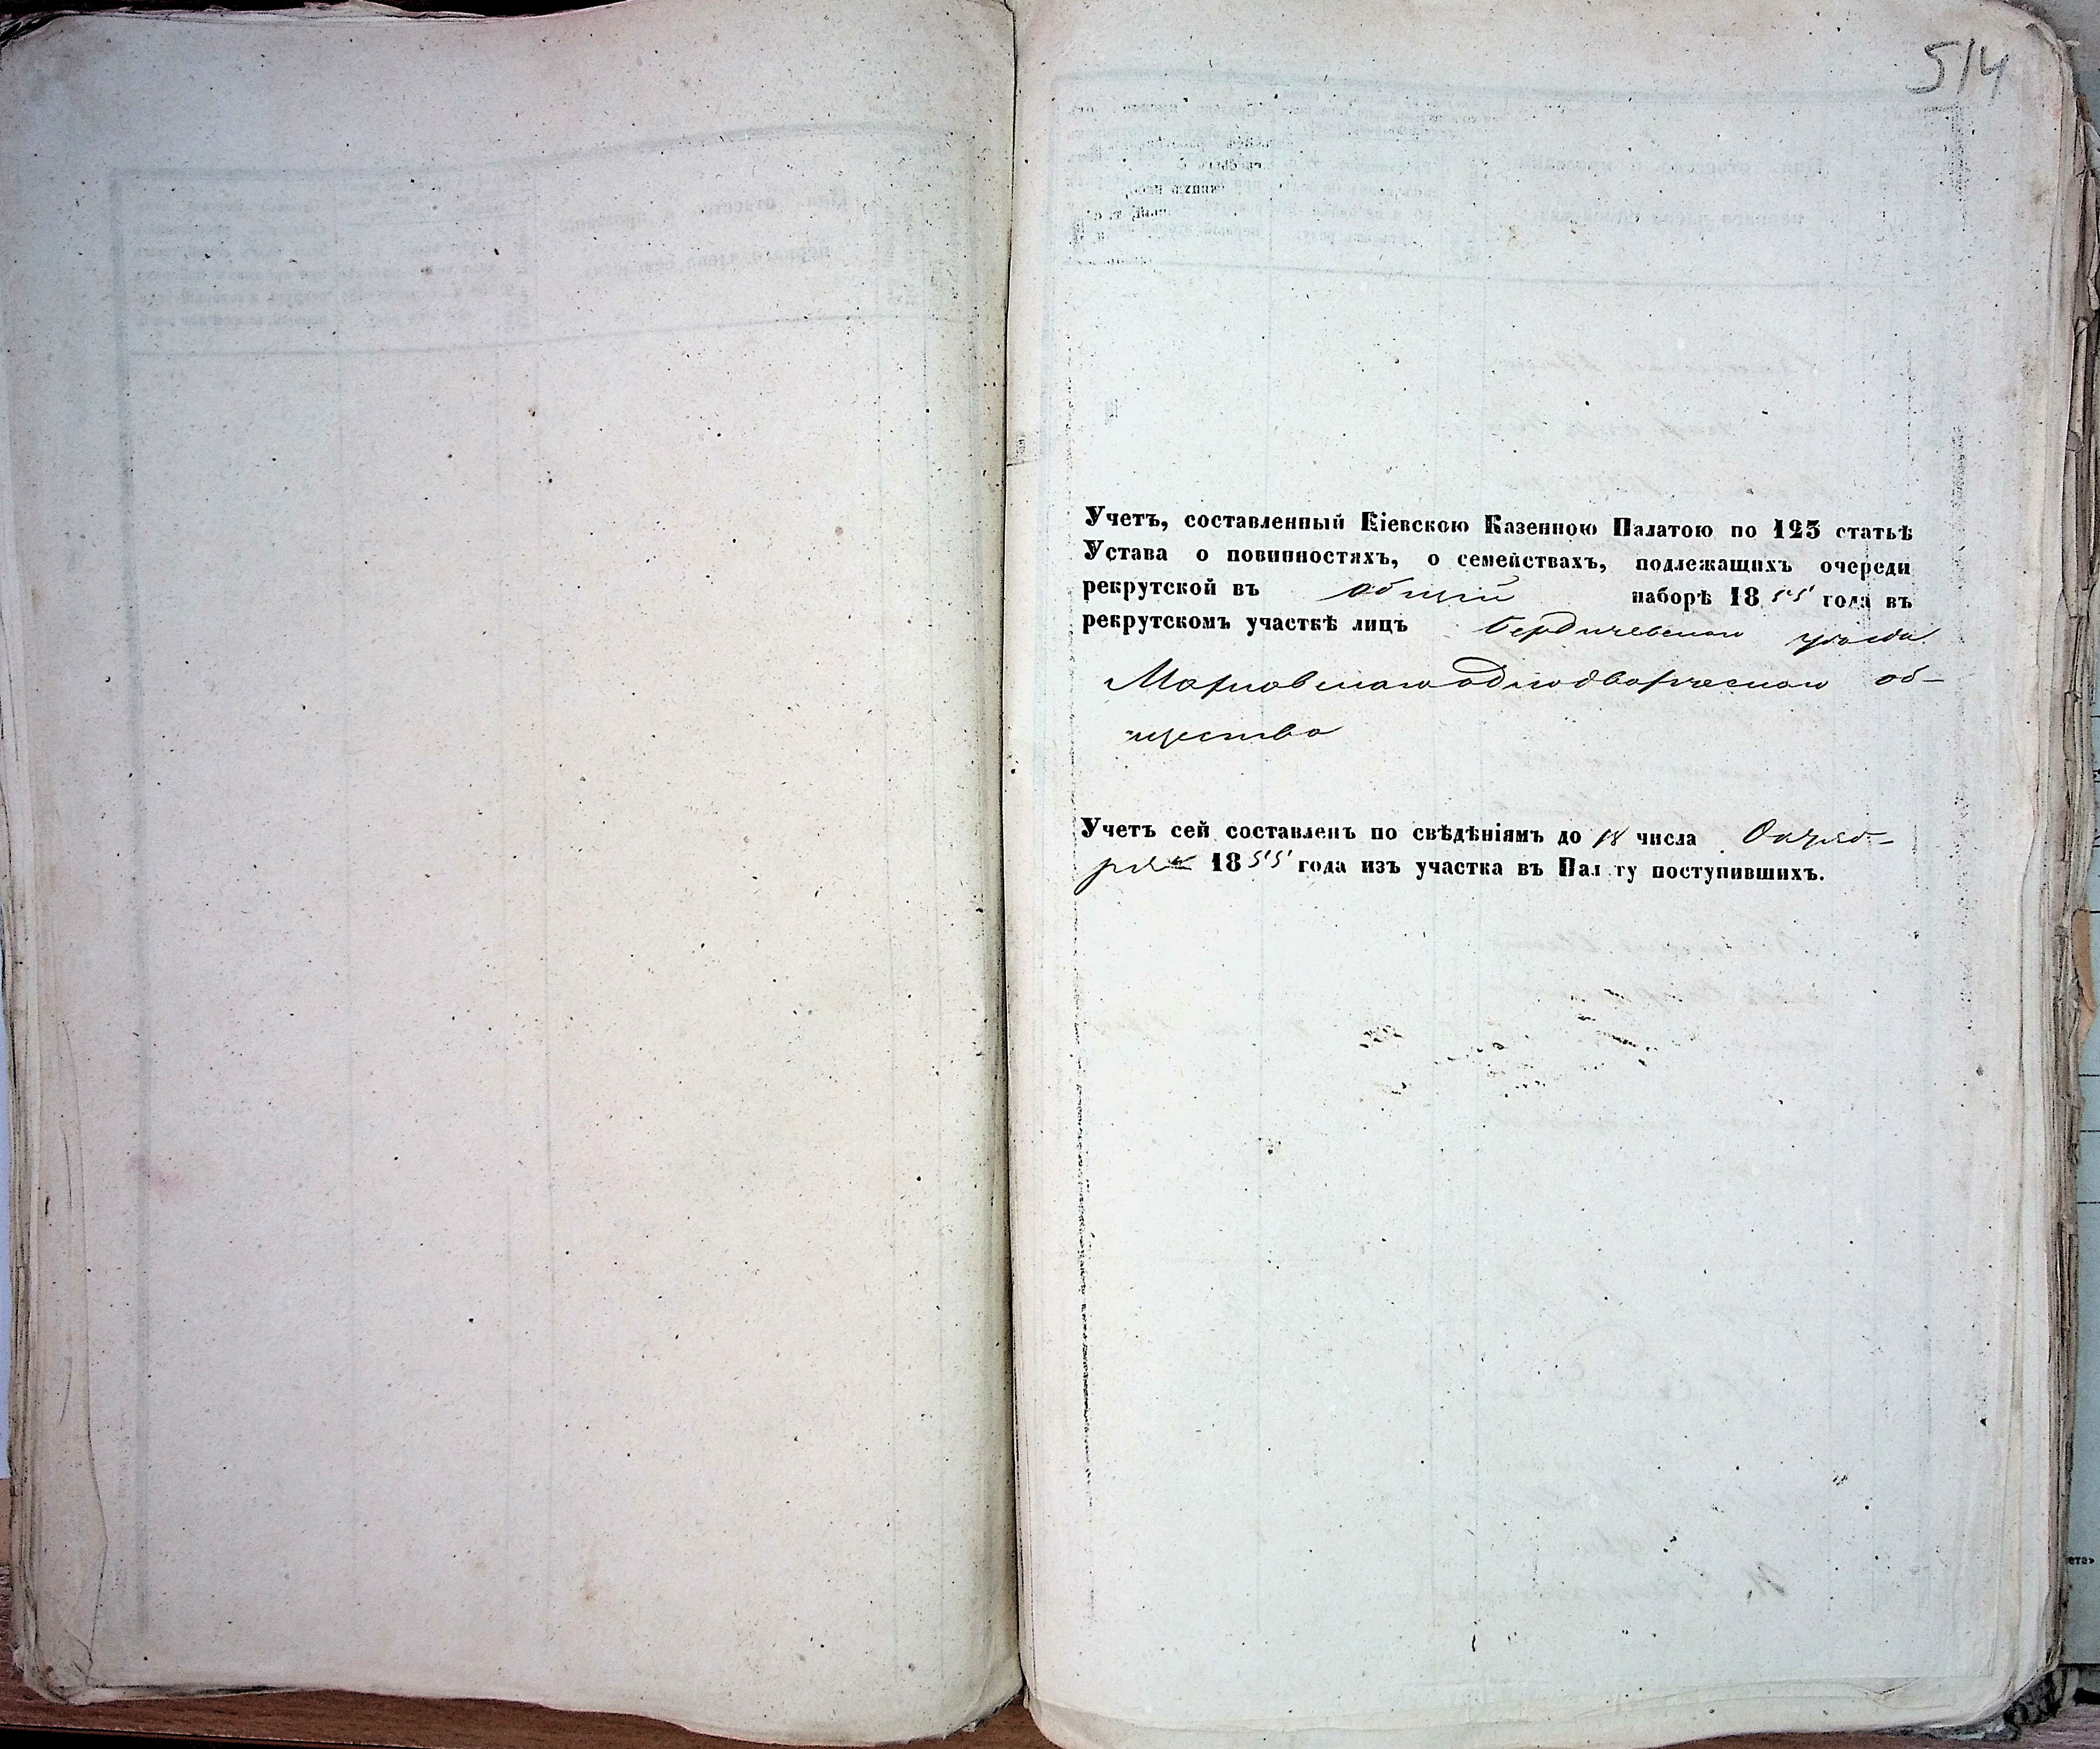 514
Учетъ, составленный Кіевскою Казенною Палатою по 123 статьѣ
Устава о повинностяхъ, о семействахъ, подлежащихъ очереди
рекрутской въ общій наборѣ 1855 года въ
рекрутскомъ участкѣ лицъ Бердичевскаго уѣзда
однодворческаго об-
щества
Учетъ сей составленъ по свѣдѣніямъ до 18 числа Октяб-
ря 1855 года изъ участка въ Пал ту поступившихъ.